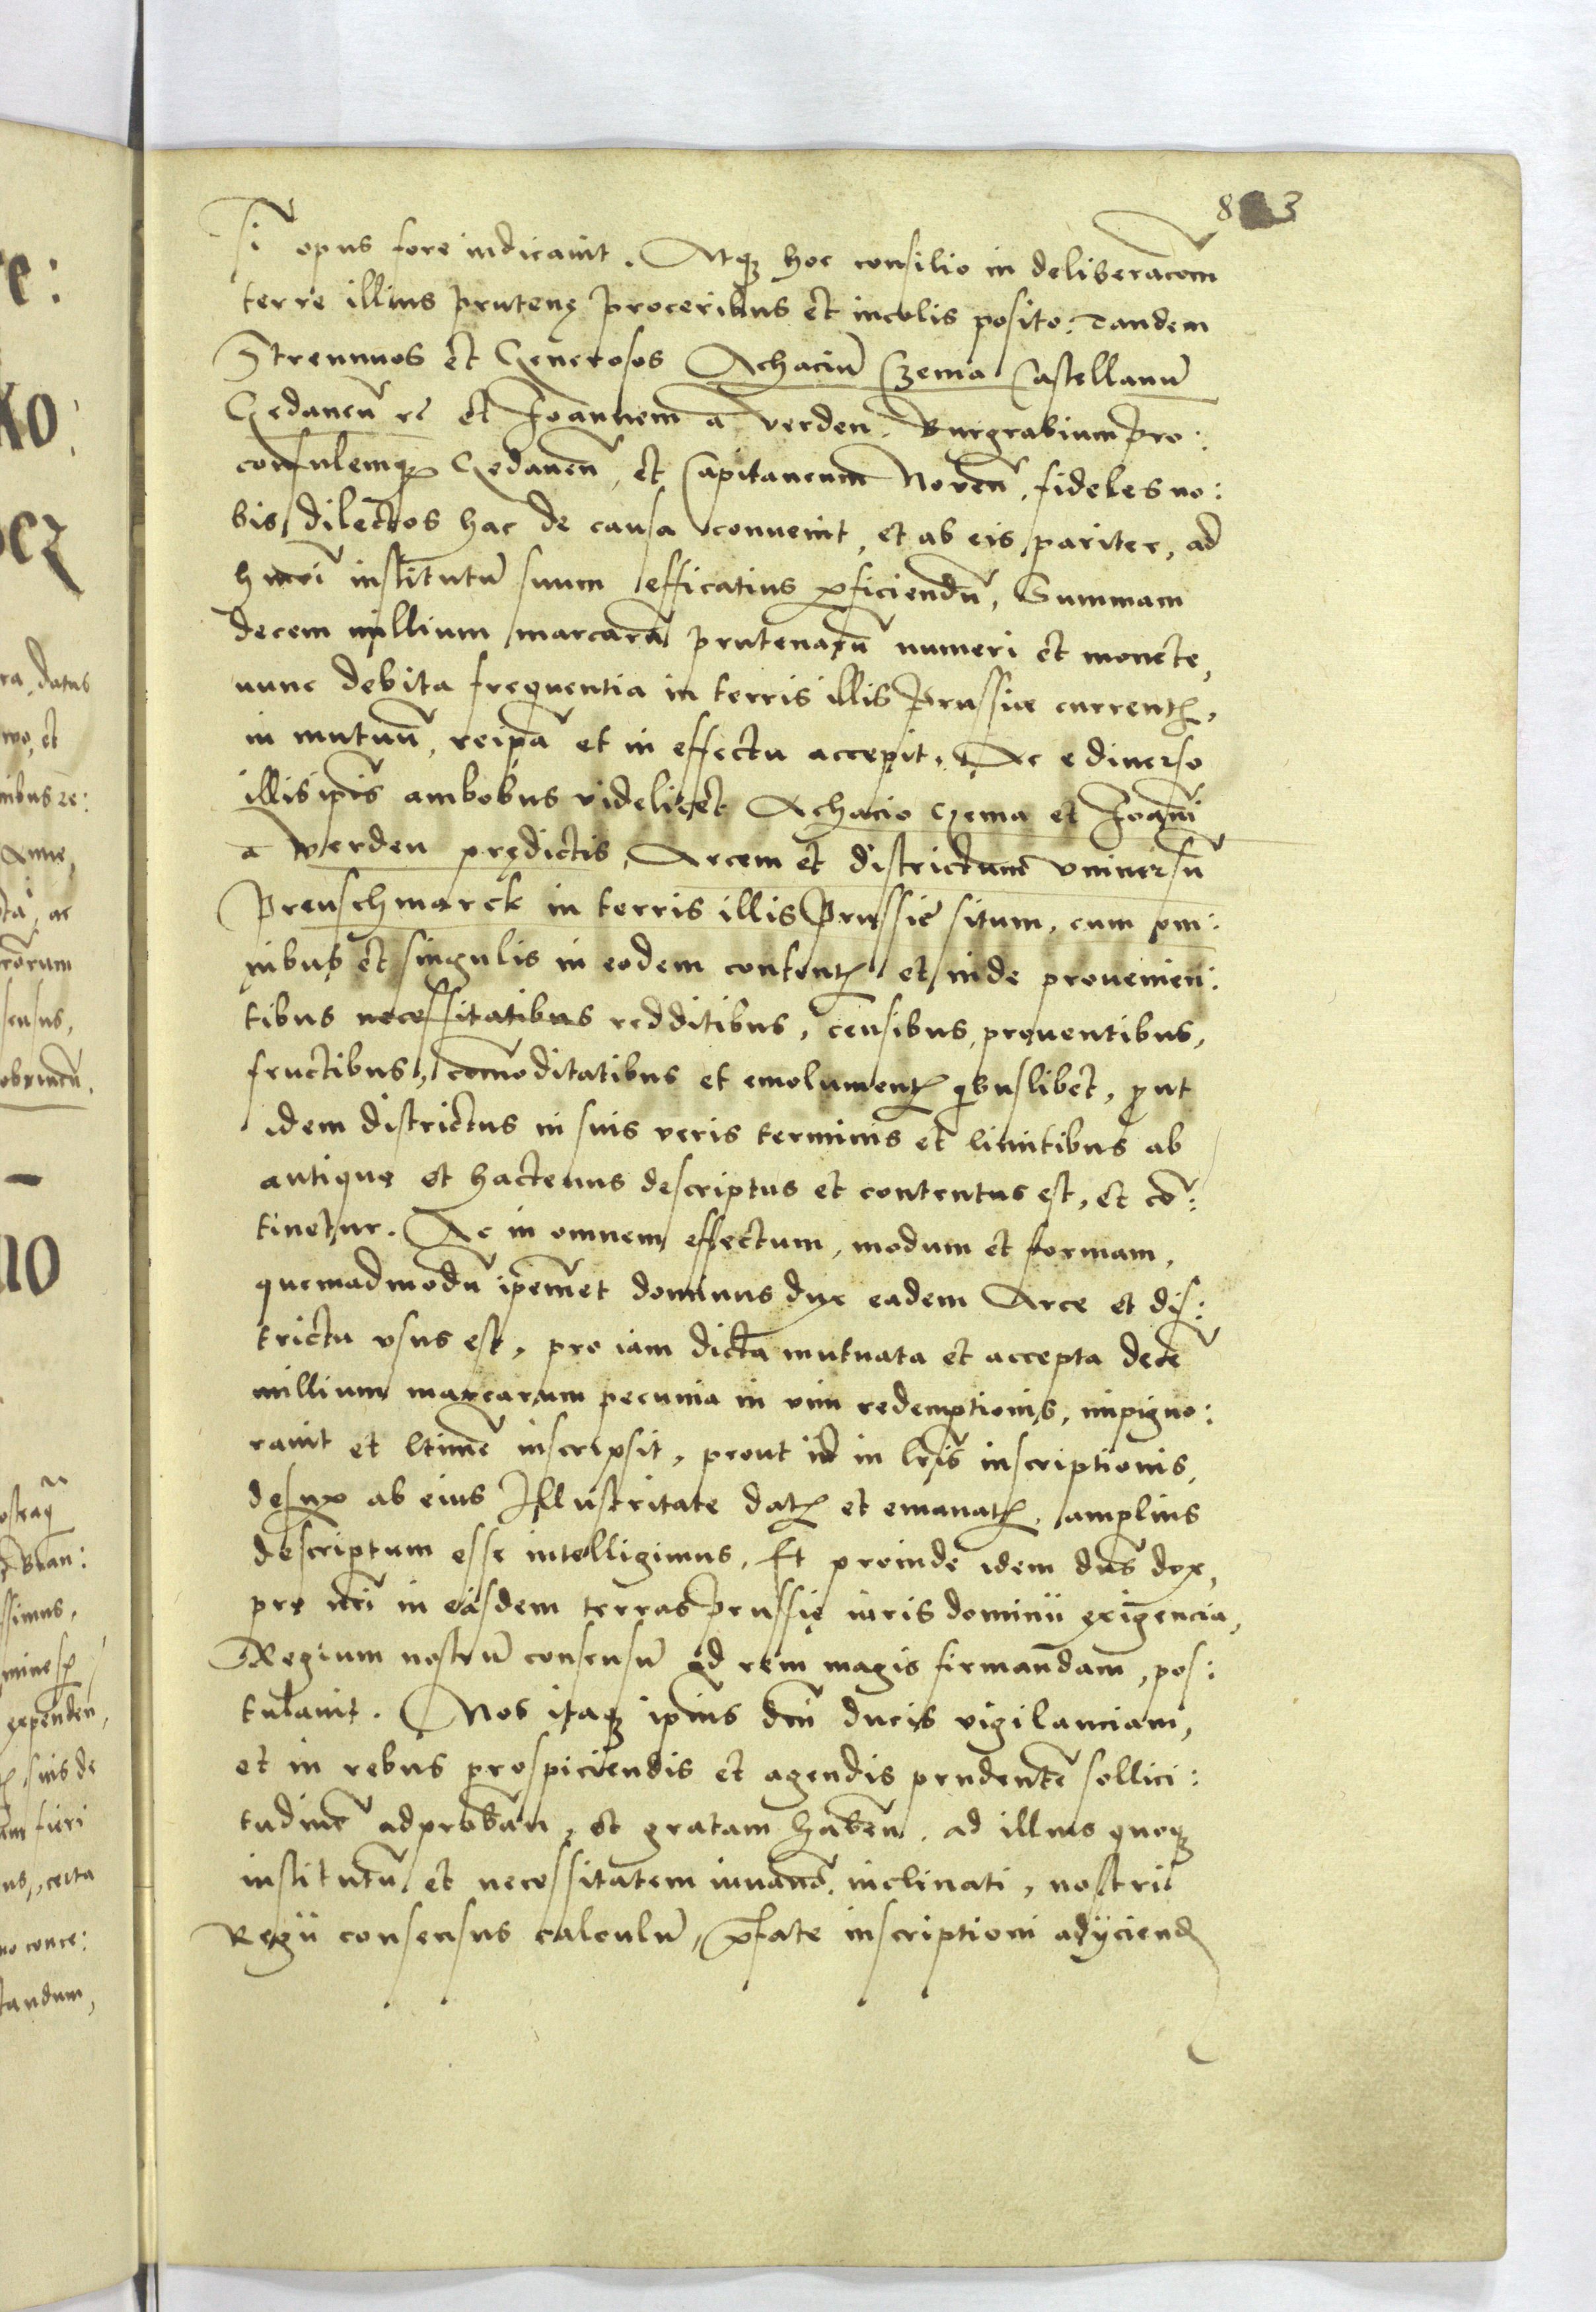 8 3
si opus fore indicavit. Atq3 hoc consilio in deliberacom̃
terre illius prutenę proceribus et incolis posito. Tandem
Strennuos et Generosos Achaciũ Czema Castellanũ
Gedaneñ et Joannem a Verden. Burgrabium Pro:
consulemq3 Gedaneñ, et Capitaneum Noveñ, fideles no:
bis dilectos hac de causa convenit, et ab eis pariter, ad
institutũ suum efficatius p̱ficiendũ, Summam
decem millium marcarũ prutenarũ numeri et monete,
nunc debita frequentia in terris illis Prussiæ currenť,
in mutuũ, reip̃a et in effectu accepit. Ac e diverso
illis ip̃is ambobus videlicet Achacio Czema et Joanñi
a Verden prędictis, Arcem et districtum vniversũ
Preuschmarck in terris illis Prussie situm, cum om:
nibus et singulis in eodem contenť et inde provenien:
tibus necessitatibus redditibus, censibus, proventibus,
fructibus, com̃oditatibus et emolumenť qbuslibet, put
idem districtus in suis veris terminis et limitibus ab
antiquo et hactenus descriptus et contentus est, et cõ:
tinetur. Ac in omnem effectum, modum et formam,
quemadmodũ ip̃em̃et dominus dux eadem Arce et dis:
trictu vsus est, pro iam dicta mutuata et accepta decẽ
millium marcarum pecunia in vim redemptionis, impigno:
ravit et l̃time inscripsit, prout id in l̃ris inscriptionis,
desup ab eius Illustritate dať et emanať, amplius
descriptum esse intelligimus. Et proinde idem dñs dux,
pro ñri in easdem terras Prussię iuris dominii exigencia,
Regium nostrũ consensũ ad rem magis firmandam, pos:
tulavit. Nos itaq3 ip̃ius dñi ducis vigilanciam,
et in rebus prospiciendis et agendis prudentẽ sollici:
tudinẽ adprobañ, et gratam habeñ, ad illius quoq3
institutũ et necessitatem iuvanð. inclinati, nostri
Regii consensus calculũ, p̃fate inscriptioni adyciend